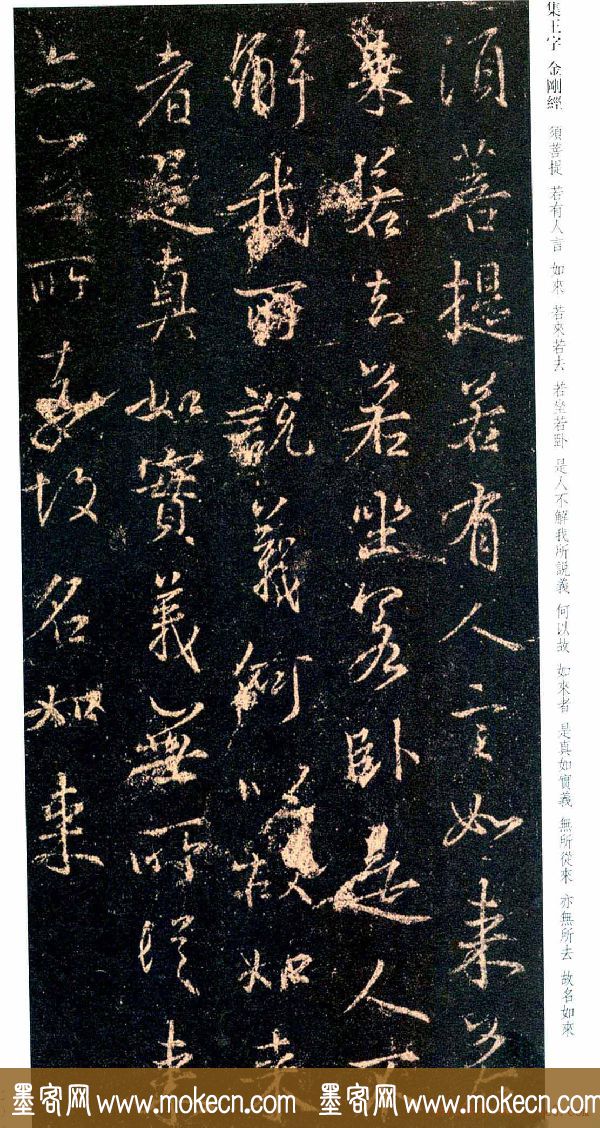 集王字 金剛經 須菩提 若有人言 如來 若來若去 若坐若卧 是人不解我所說義 何以故 如來者 是真如實義 無所從來 亦無所去 故名如來
須菩提若有人言如来若
来若去若坐若卧是人不
解我所說義何以故如来
者是真如實義無所從来
亦無所去故名如来
墨客网 www.mokecn.com 墨客网 www.mokecn.com